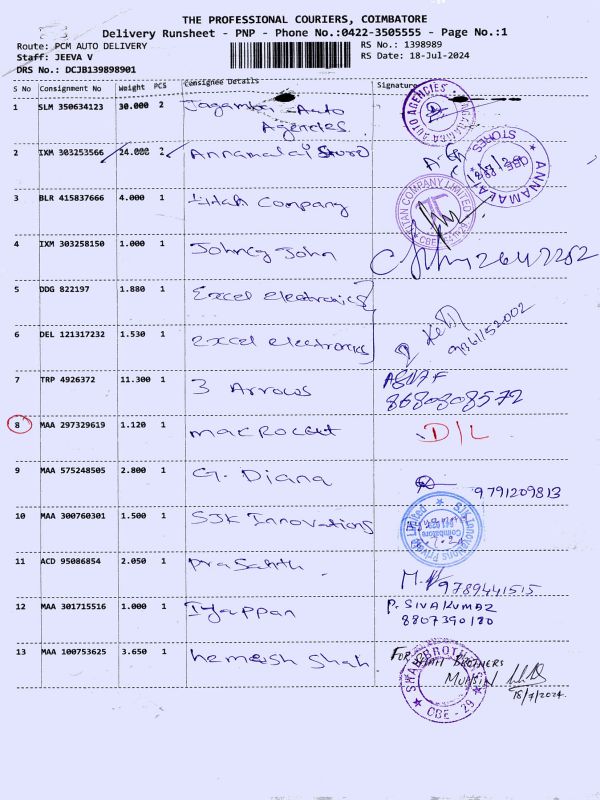 THE PROFESSIONAL COURIERS, COIMBATORE
Delivery Runsheet - PNP - Phone No.:0422-3505555 - Page No.:1
Route: PCM AUTO DELIVERY
RS No.: 1398989
Staff: JEEVA V
RS Date: 18-Jul-2024
DRS No.: DCJB139898901
S No Consignment No Weight PCS Consignee Details Signature
1 SLM 350634123 30.000 2 Jagamba Auto
Agencies
AUTO AGENCIES
2 IXM 303253566 24.000 2 Annamalai Store
ANNAMALAI STORES
3 BLR 415837666 4.000 1 Titan Company
TITAN COMPANY LIMITED
CBE
4 IXM 303258150 1.000 1 Johncy John
5 DDG 822197 1.880 1 Excel electronics
6 DEL 121317232 1.530 1 excel electronics
7 TRP 4926372 11.300 1 3 Arrows
8680808572
8 MAA 297329619 1.120 1 macrocet D/L
9 MAA 575248505 2.800 1 G. Diana 9791209813
10 MAA 300760301 1.500 1 SJK Innovations
SJK Innovations Private Limited
Coimbatore
11 ACD 95086854 2.050 1 prasanth 9789441515
12 MAA 301715516 1.000 1 Iyappan P. SIVAKUMAR
8807390180
13 MAA 100753625 3.650 1 hemesh shah FOR SHAH BROTHERS
MUHSIN
18/7/2024
SHAH BROTHERS
CBE - 29